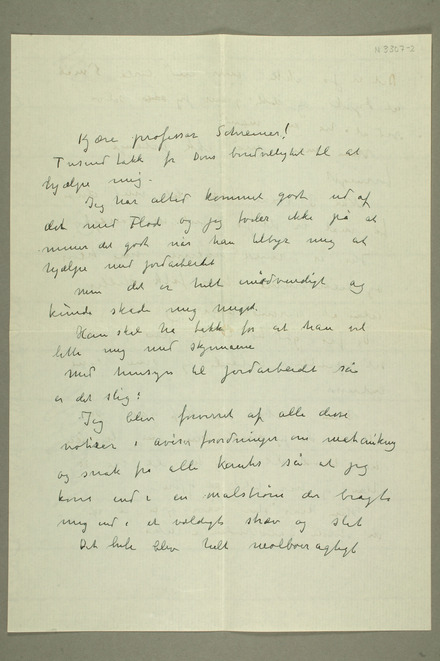 N 3327-2
Kjære professor Schreiner!
Tusind takk for Deres bredvillighet til at
hjælpe mig.
Jeg har altid kommet godt ud af
det med Flod og jeg tviler ikke på at
mener det godt når han tilbyr mig at
hjælpe med jordarbeidet
men det er helt unødvendigt og
kunde skade mig meget.
Han skal ha takk for at han vil
lette mig med
Med hensyn til jordarbeidet så
er det slig:
Jeg blev forvirret af alle disse
notiser i aviser forordninger om matauking
og snak fra alle kanter så at jeg
kom ind i en malstrøm der bragte
mig ind i et vældigt stræv og slit
Det hele blev helt